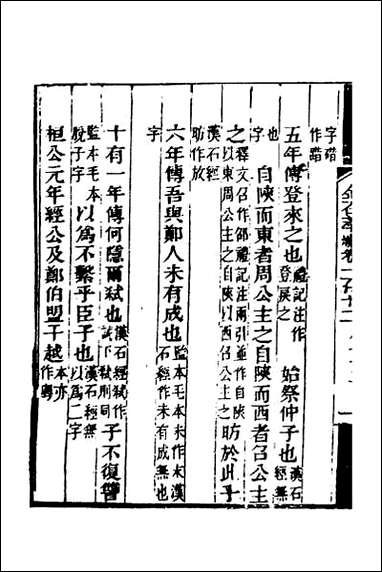 字碏作踖
五年傳登來之也禮記注作登戾之 始祭仲子也漢石經無
也字 自陝而東者周公主之自陝而西者召公主
之釋文召作邵禮記注兩引並作自陝以東周公主之自陝以西召公主之 昉於此乎
漢石經昉作放
六年傳吾與鄭人未有成也監本毛本未作末漢石經作未有成無也
字
十有一年傳何隱爾弒也漢石經弒作試下弒則同 子不復讎
監本毛本脫子字 以爲不繫乎臣子也漢石經無以爲二字
桓公元年經公及鄭伯盟于越本亦作粵